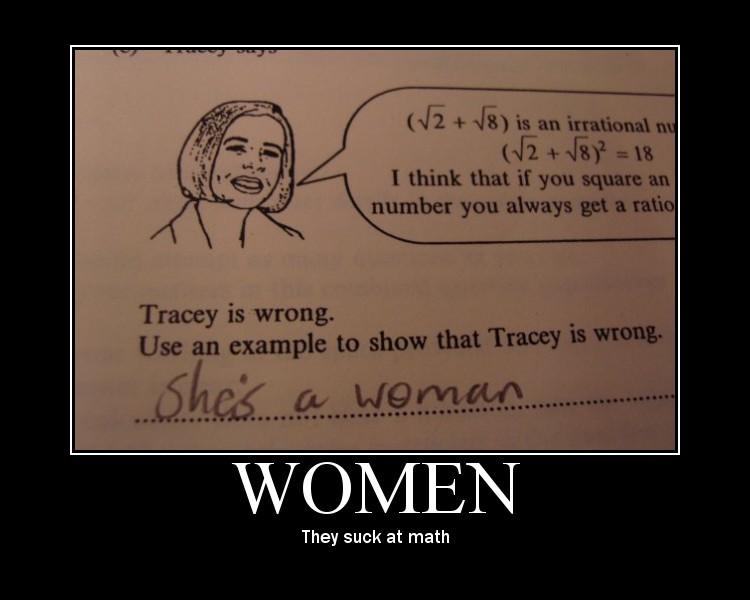 (√2 + √8) is an irrational
(√2 + √8)² = 18
I think that if you square an
number you always get a
Tracey is wrong.
Use an example to show that Tracey is wrong.
She's a woman
WOMEN
They suck at math